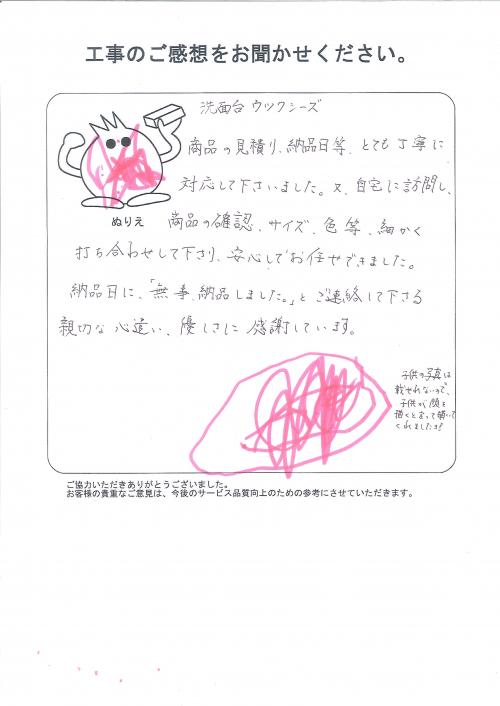 工事のご感想をお聞かせください。
洗面台 ウツクシーズ
商品の見積り、納品日等、とても丁寧に
対応して下さいました。又、自宅に訪問し、
ぬりえ
商品の確認、サイズ、色等、細かく
打ち合わせして下さり、安心してお任せできました。
納品日に、「無事、納品しました。」とご連絡して下さる
親切な心遣い、優しさに感謝しています。
子供の写真は
載せれないので、
子供が顔を
描くと言って描いて
くれました
ご協力いただきありがとうございました。
お客様の貴重なご意見は、今後のサービス品質向上のための参考にさせていただきます。